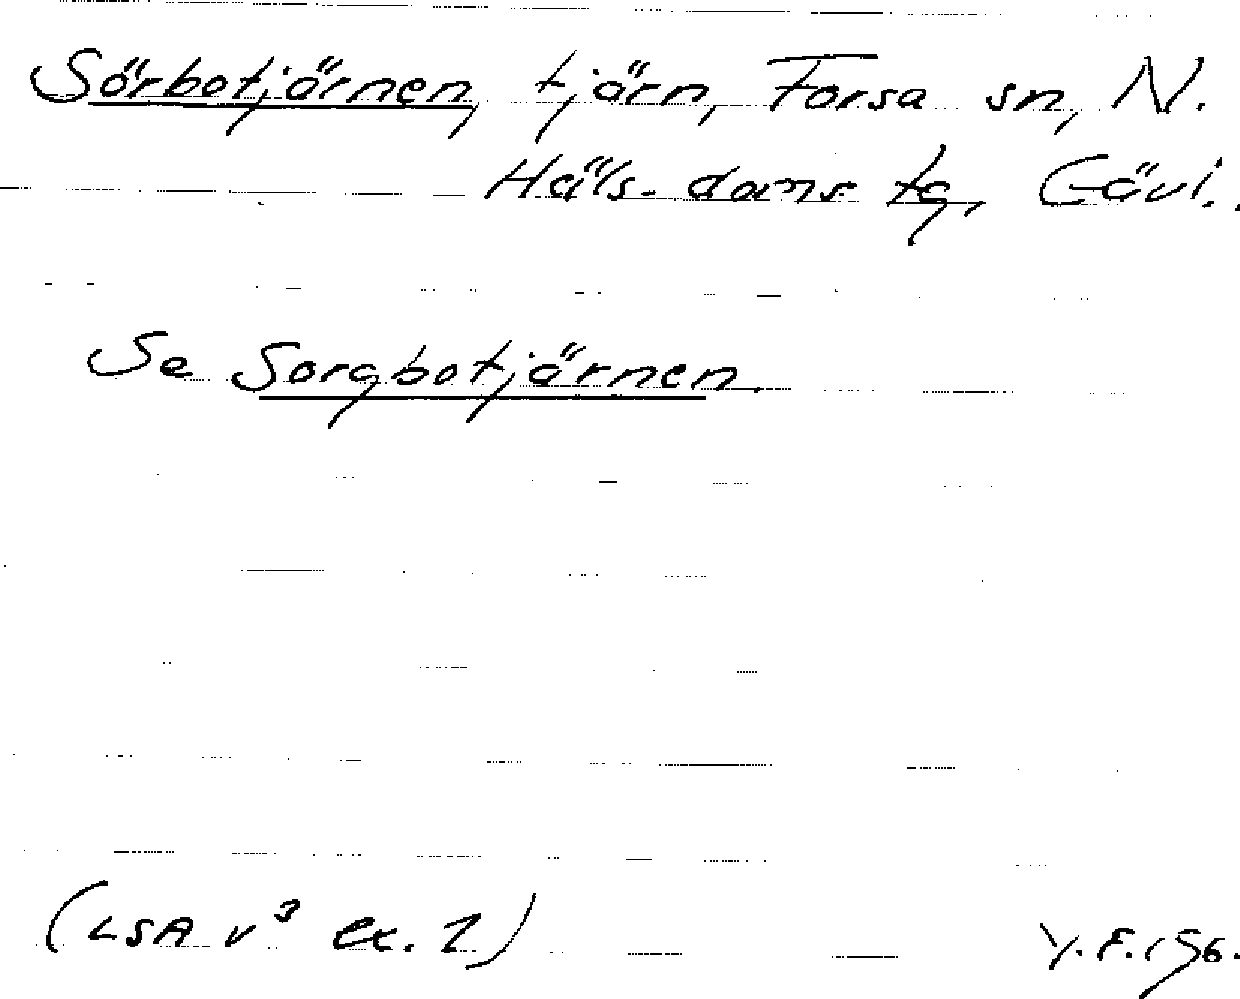 Sörbotjärnen, tjärn, Forsa sn, N.
Häls. doms tg, Gävl.
Se Sorgbotjärnen.
(LSA v³ ex. 2)
Y.F. 156.